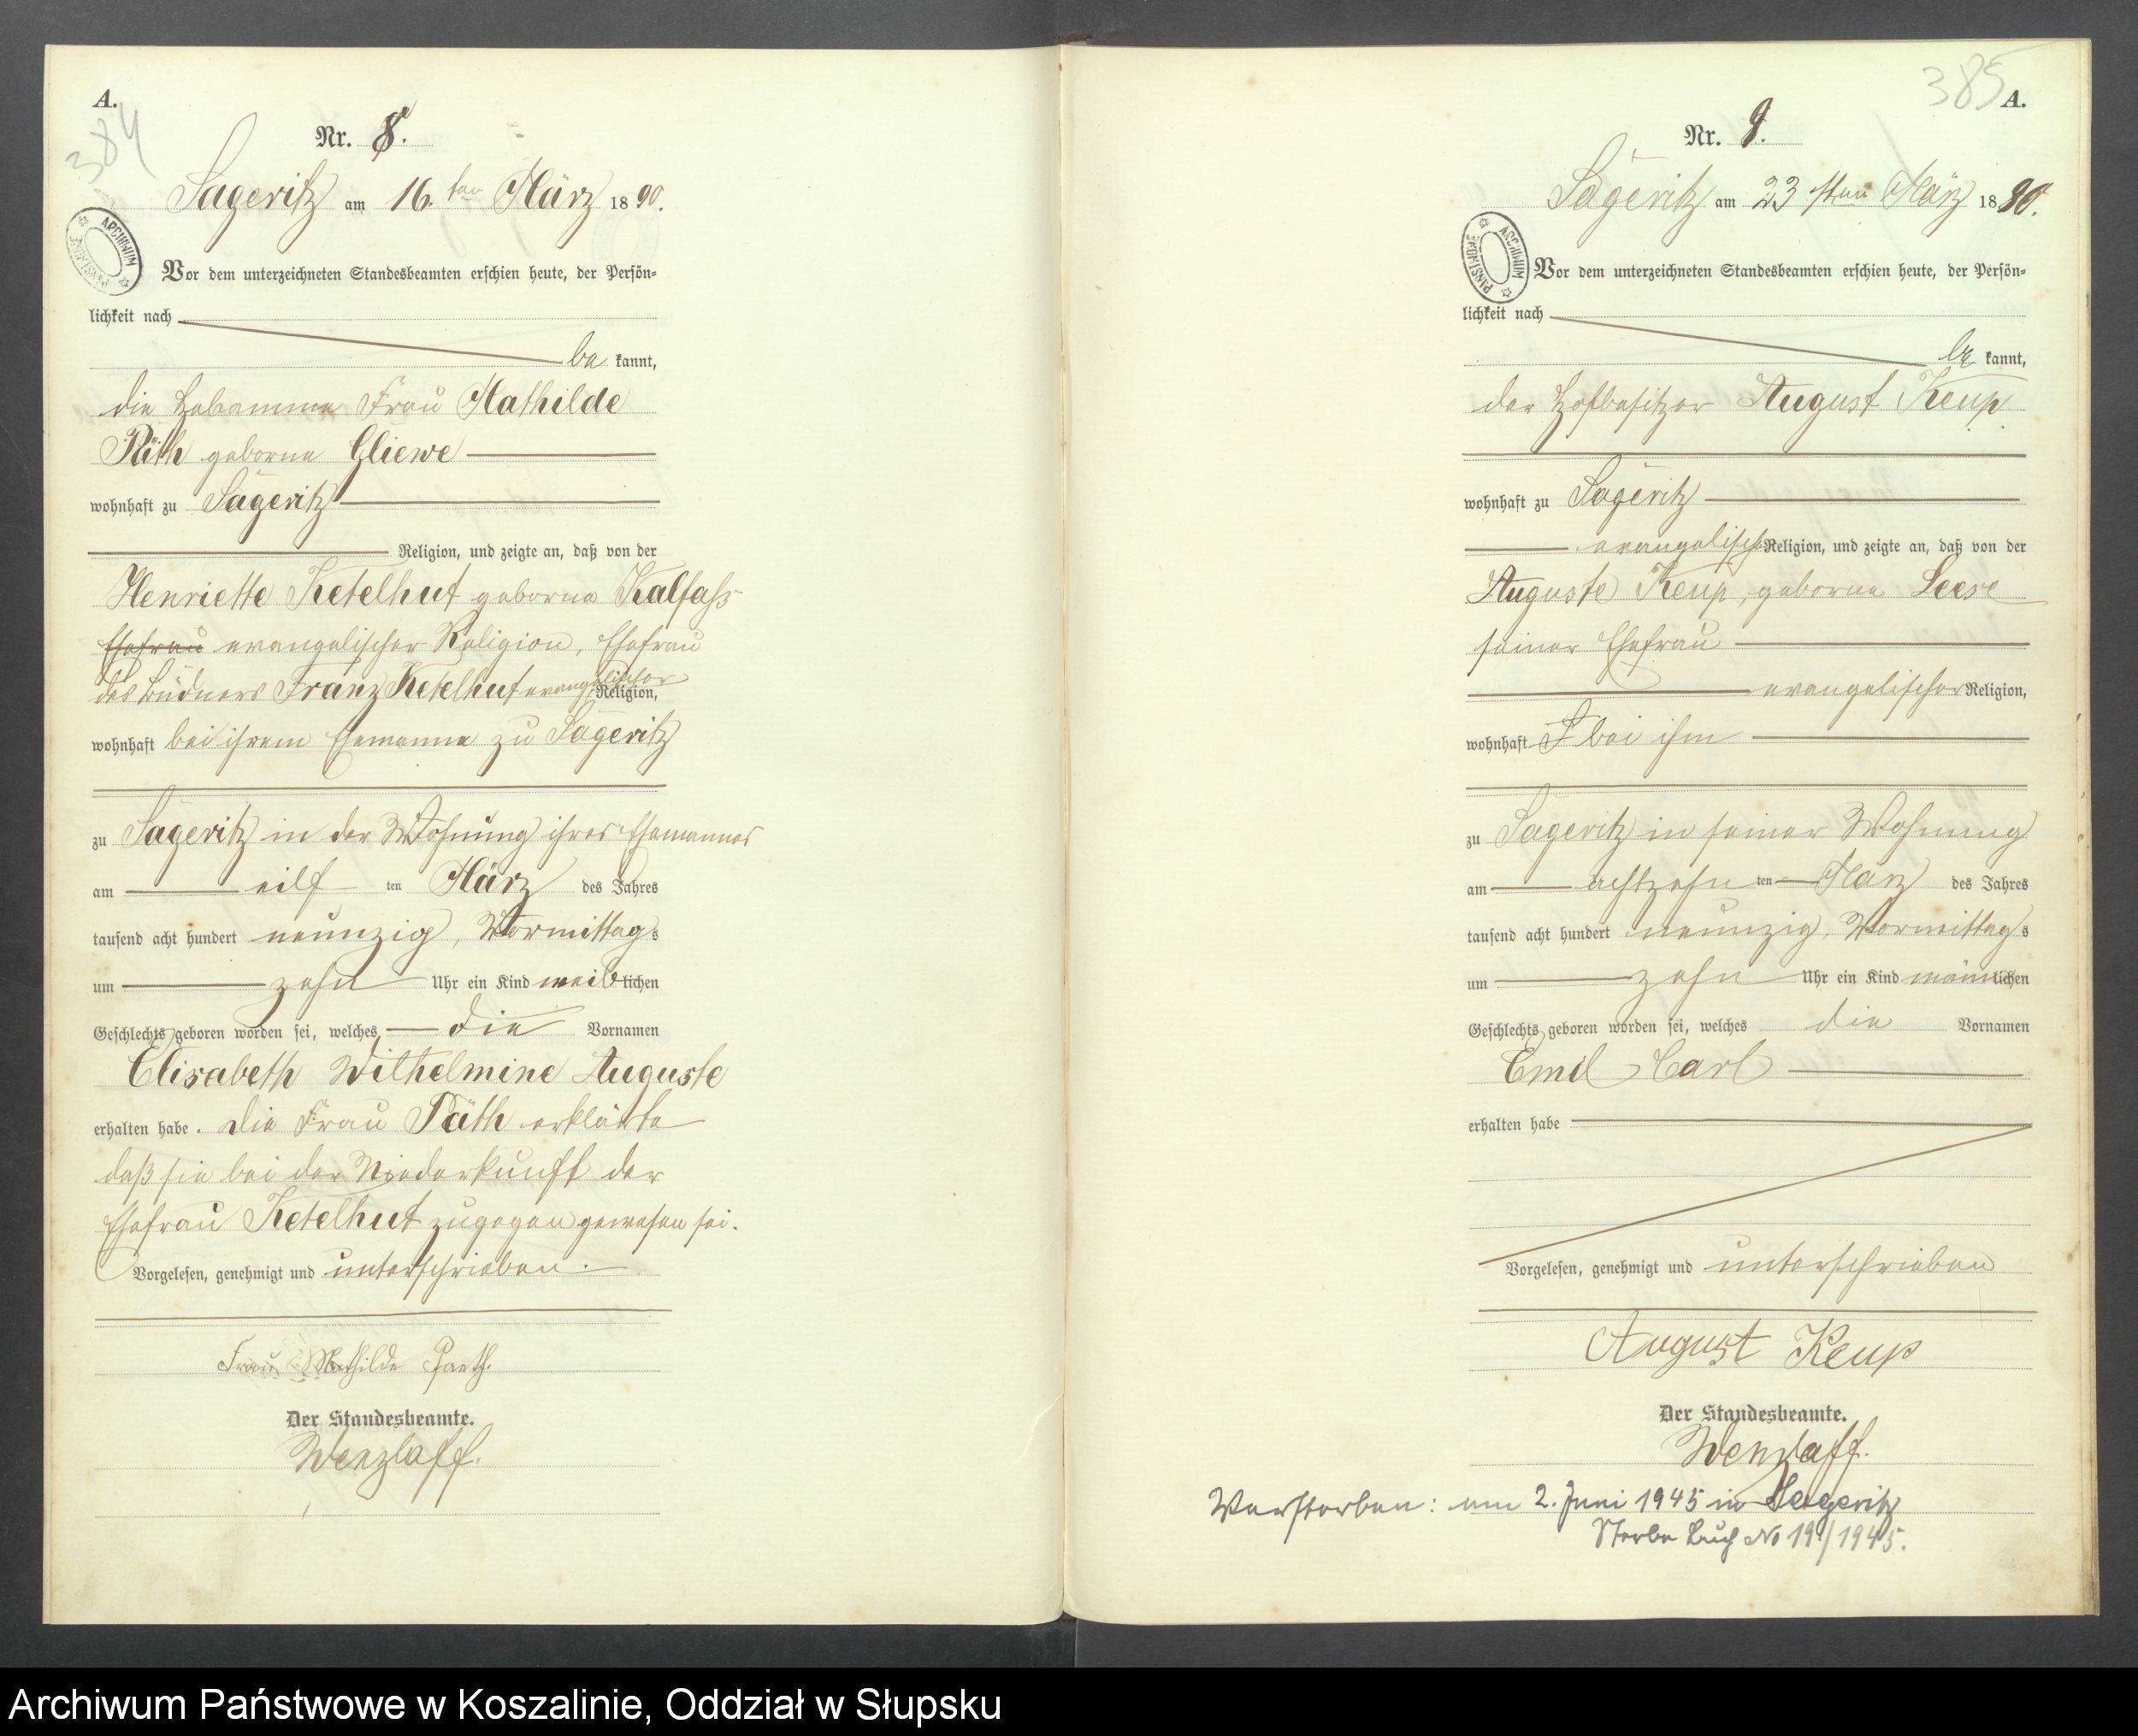 A.
384
Nr. 8.
Sageritz am 16.ten März 1890.
ARCHIWUM PAŃSTWOWE
Vor dem unterzeichneten Standesbeamten erschien heute, der Persön=
lichkeit nach
be kannt,
die Hebamme Frau Mathilde
Päth geborne Gliewe
wohnhaft zu Sageritz
Religion, und zeigte an, daß von der
Henriette Ketelhut geborne Kalfass
Ehefrau evangelischer Religion, Ehefrau
des Büdners Franz Ketelhut evangelischer Religion,
wohnhaft bei ihrem Ehemanne zu Sageritz
zu Sageritz in der Wohnung ihres Ehemannes
am eilf ten März des Jahres
tausend acht hundert neunzig, Vormittags
um zehn Uhr ein Kind weiblichen
Geschlechts geboren worden sei, welches die Vornamen
Elisabeth Wilhelmine Auguste
erhalten habe. Die Frau Päth erklärte
daß sie bei der Niederkunft der
Ehefrau Ketelhut zugegen gewesen sei.
Vorgelesen, genehmigt und unterschrieben.
Frau Mathilde Paeth.
Der Standesbeamte.
Wenzlaff.
385
A.
Nr. 9.
Sageritz am 23 sten März 1890.
ARCHIWUM PAŃSTWOWE
Vor dem unterzeichneten Standesbeamten erschien heute, der Persön=
lichkeit nach
be kannt,
der Hofbesitzer August Keup
wohnhaft zu Sageritz
evangelisch Religion, und zeigte an, daß von der
Auguste Keup, geborne Leese
seiner Ehefrau
evangelischer Religion,
wohnhaft bei ihm
zu Sageritz in seiner Wohnung
am achtzehn ten März des Jahres
tausend acht hundert neunzig, Vormittags
um zehn Uhr ein Kind männlichen
Geschlechts geboren worden sei, welches die Vornamen
Emil Carl
erhalten habe
Vorgelesen, genehmigt und unterschrieben
August Keup
Der Standesbeamte.
Wenzlaff.
Verstorben: am 2. Juni 1945 in Sageritz
Sterbe Buch No 19/1945.
Archiwum Państwowe w Koszalinie, Oddział w Słupsku